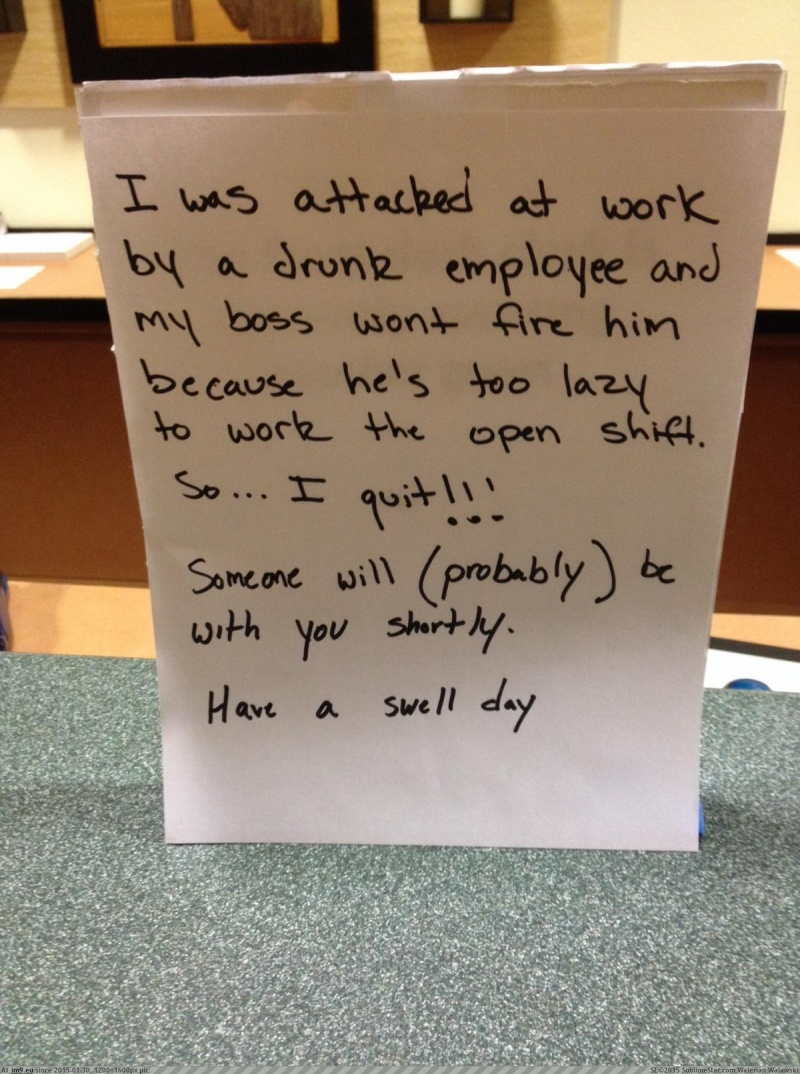 I was attacked at work
by a drunk employee and
my boss wont fire him
because he's too lazy
to work the open shift.
So... I quit!!!
Someone will (probably) be
with you shortly.
Have a swell day
At im9.eu since 2015-01-30, 1200×1600px pic.
SE ©2015 SublimeStar.com Walerian Walawski